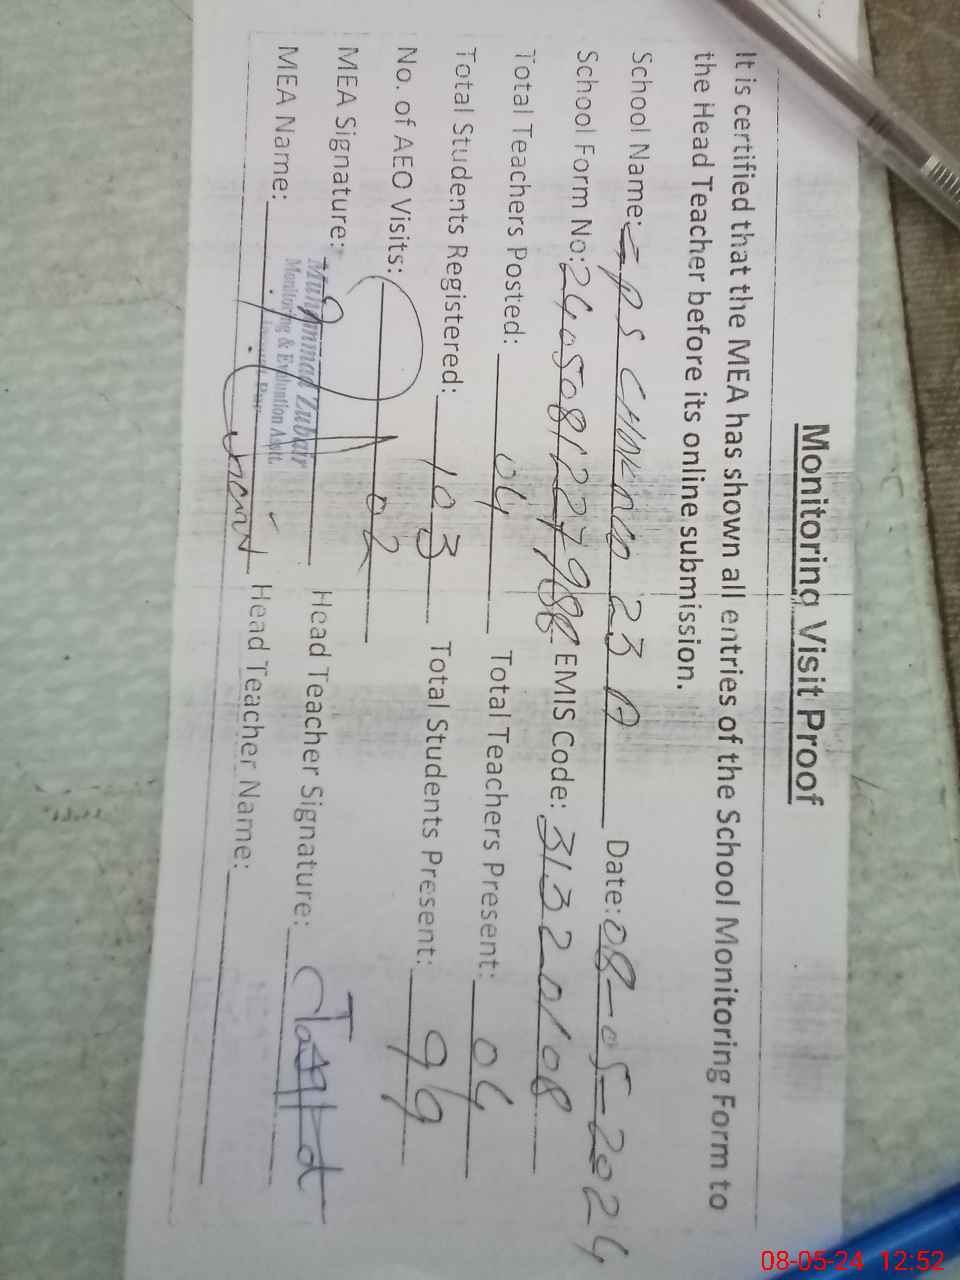 Monitoring Visit Proof
It is certified that the MEA has shown all entries of the School Monitoring Form to
the Head Teacher before its online submission.
School Name: GPS 23 A Date: 08-05-2024
School Form No: 2405081227988 EMIS Code: 31320108
Total Teachers Posted: 04 Total Teachers Present: 04
Total Students Registered: 103 Total Students Present: 99
No. of AEO Visits: 02
MEA Signature: Head Teacher Signature:
Muhammad Zubair
Monitoring & Evaluation Asstt.
MEA Name: Head Teacher Name:
08-05-24 12:52